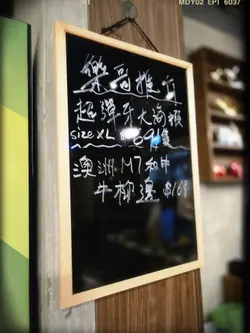 MDY02 EPT 6037
樂高推介
超彈牙大海蝦
size XL 69/隻
澳洲M7和牛
牛柳邊 $169